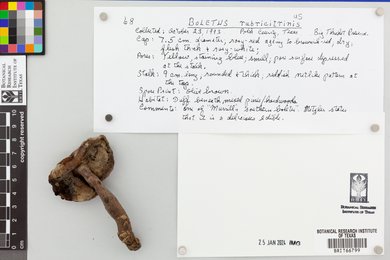 68
BOLETUS rubricitrinis US
Collected; October 23, 1983 Polk County, Texas Big Thicket Preserve
Cap: 7.5 cm. diameter, rosy-red aging to brownish-red, dry;
flesh thick & rosy-white;
Pores: Yellow, staining blue; small; pore surface depressed
at the stalk.
Stalk: 9 cm. long, rounded & thick, reddish netlike pattern at
the top.
Spore Print: olive brown.
Habitat: Duff beneath mixed pine/hardwoods
Comments: One of Murrill's Southern boletes. Metzler states
that it is a delicious edible.
BOTANICAL RESEARCH
INSTITUTE OF TEXAS
25 JAN 2024
BOTANICAL RESEARCH INSTITUTE
OF TEXAS
BRIT66799